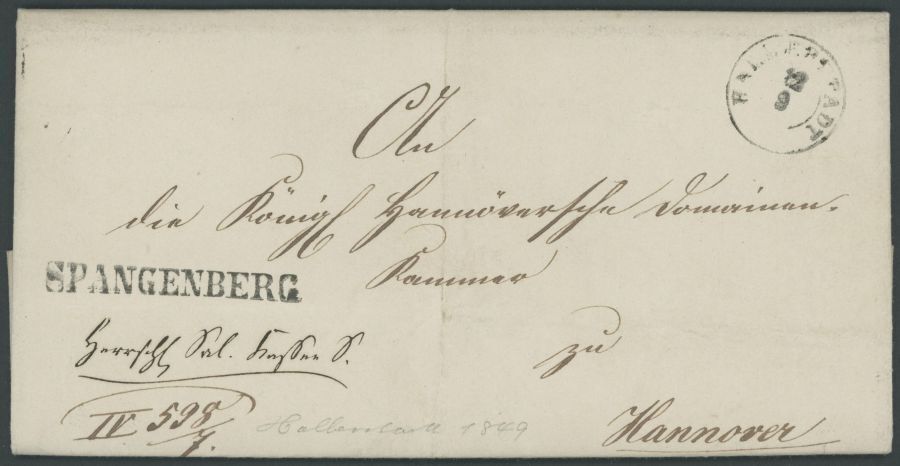 HALBERSTADT
12
9
An
die Königl Hannöversche Domainen-
Kammer
SPANGENBERG
zu
Herrschl Sal. Kassen S.
IV 598/7.
Halberstadt 1849
Hannover